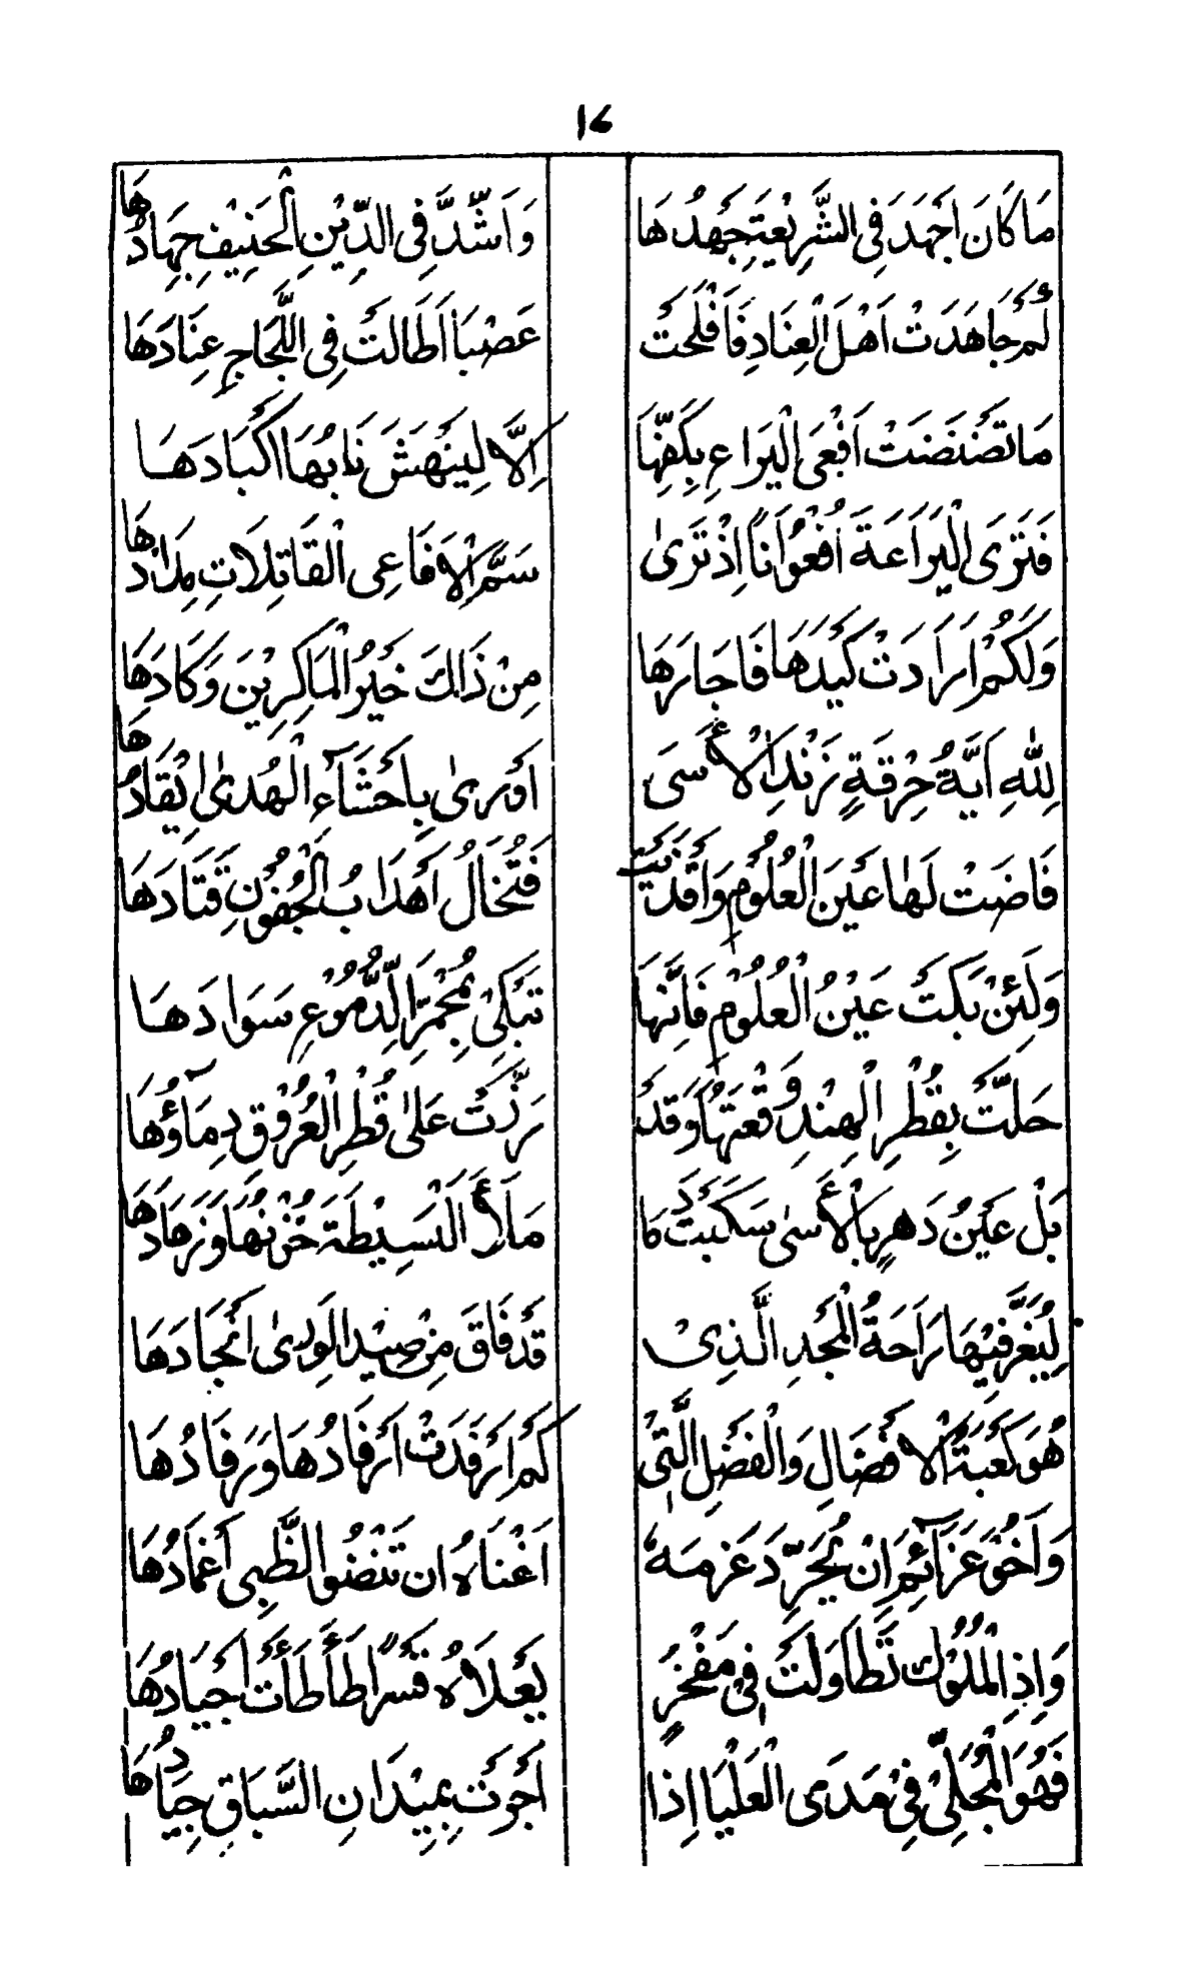 ۱۶
مَا كَانَ اَجْهَدَ فِی الشَّرِیْعَةِ جَهْدُهَا وَاَشَدَّ فِی الدِّیْنِ الْحَنِیْفِ جِهَادُهَا
كَمْ جَاهَدَتْ اَهْلَ الْعِنَادِ فَاَفْلَحَتْ عَصْبًا اَطَالَتْ فِی اللَّجَاجِ عِنَادَهَا
مَا تَضَنْضَنَتْ اَفْعَى الْیَرَاعِ بِكَفِّهَا اِلَّا لِیَنْهَشَ نَابُهَا اَكْبَادَهَا
فَتَرَى الْیَرَاعَةَ اُفْعُوَانًا اِذْ تَرٰى سَمَّ الْاَفَاعِی الْقَاتِلَاتِ مِدَادَهَا
وَلَكَمْ اَرَادَتْ كَیْدَهَا فَاَجَارَهَا مِنْ ذَالِكَ خَیْرُ الْمَاكِرِیْنَ وَكَادَهَا
لِلّٰهِ اَیَّةُ حِرْقَةٍ زَنْدِ الْاَسَى اَوْرٰى بِاَحْشَآءِ الْهُدٰى اِیْقَادُهَا
فَاضَتْ لَهَا عَیْنُ الْعُلُوْمِ وَاَقْذَیَتْ فَتُخَالُ اَهْدَابُ الْجُفُوْنِ قَتَادَهَا
وَلَئِنْ بَكَتْ عَیْنُ الْعُلُوْمِ فَاِنَّهَا تَبْكِیْ بِمُحْمَرِّ الدُّمُوْعِ سَوَادَهَا
حَلَّتْ بِقُطْرِ الْهِنْدِ وَقْعَتُهَا وَقَدْ رَزَّتْ عَلٰى قُطْرِ الْعُرُوْقِ دِمَآؤُهَا
بَلْ عَیْنُ دَهْرٍ بِالْاَسٰى سَكَبَتْ دَمًا مَلَأَ الْبَسِیْطَةَ حُزْنُهَا وَزَهَادَهَا
لِیُغَرَّ فِیْهَا رَاحَةُ الْمَجْدِ الَّذِیْ قَدْ فَاقَ مِنْ صِیْدِ الْوَرٰى اَنْجَادَهَا
هُوَ كَعْبَةُ الْاَفْضَالِ وَالْفَضْلِ الَّتِیْ كَمْ اَرْفَدَتْ اَرْفَادُهَا وَرَفَادُهَا
وَاَخُوْ عَزَآئِمَ اِنْ یُجَرِّدْ عَزْمَهٗ اَغْنَاهُ ان تَنْضُو الظُّبِى اَغْمَادُهَا
وَاِذِ الْمُلُوْكُ تَطَاوَلَتْ فِیْ مَفْخَرٍ بِعُلَاهُ قَسْرًا طَأْطَأَتْ اَجْیَادُهَا
فَهُوَ الْمُجَلِّیْ فِیْ مَدَى الْعَلْیَا اِذَا اَجْرَتْ بِمِیْدَانِ السَّبَاقِ جِیَادُهَا